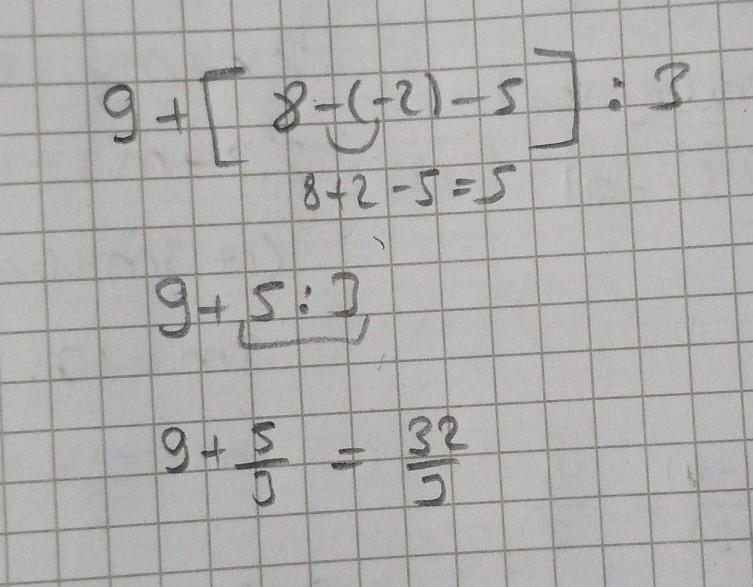 9 + [ 8 - (-2) - 5 ] : 3
8 + 2 - 5 = 5
9 + 5 : 3
9 + 5/3 = 32/3